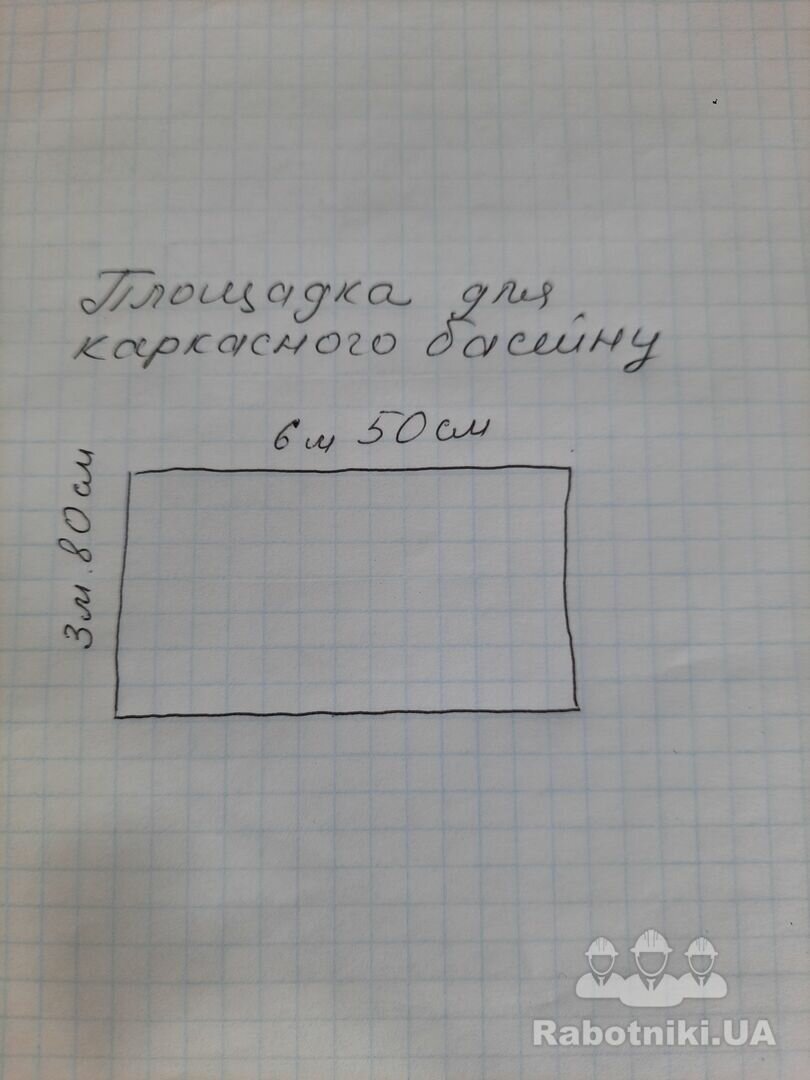 Площадка для
каркасного басейну
6 м 50 см
3 м. 80 см
Rabotniki.UA